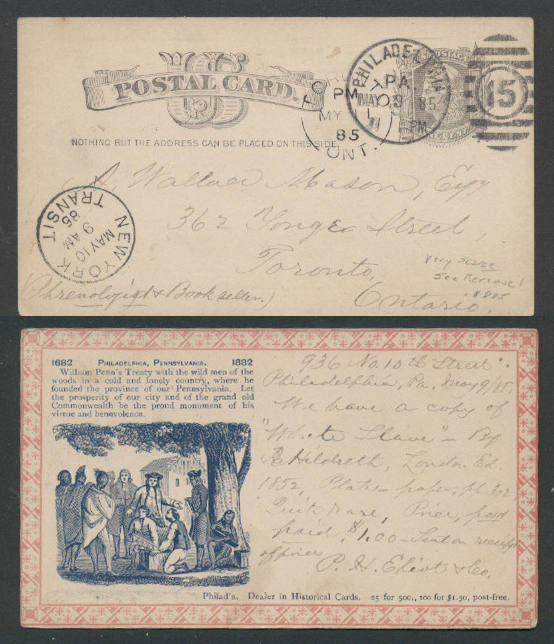 POSTAL CARD.
NOTHING BUT THE ADDRESS CAN BE PLACED ON THIS SIDE.
PM
MY 11
85
ONT.
PHILADELPHIA
PA.
MAY 9 85
PM
15
A. Wallace Mason, Esq
362 Yonge Street
Toronto,
Ontario.
(Phrenologist & Book seller.)
NEW YORK
MAY 10
9 AM
85
TRANSIT
Very scarce
See Reverse!
1682 PHILADELPHIA, PENNSYLVANIA. 1882
William Penn's Treaty with the wild men of the
woods in a cold and lonely country, where he
founded the province of our Pennsylvania. Let
the prosperity of our city and of the grand old
Commonwealth be the proud monument of his
virtue and benevolence.
936 No. 10th Street.
Philadelphia, Pa, May 9, 
We have a copy of
"White Slave" - By
Hildreth, London Ed.
1852, Plates - paper,
rare, Price, post
paid, $1.00 - on receipt
of price
P. H. Eliot & Co.
Philad'a. Dealer in Historical Cards. 25 for 50c., 100 for $1.50, post-free.